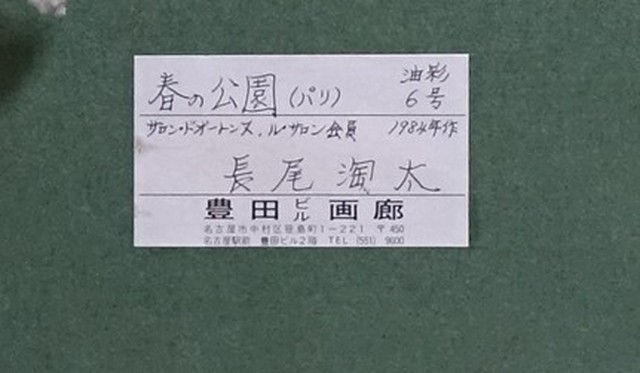 春の公園(パリ) 油彩 6号
サロン・ドオートンヌ、ル・サロン会員 1984年作
長尾淘太
豊田ビル画廊
名古屋市中村区笹島町1-221 〒450
名古屋駅前 豊田ビル2階 TEL (551) 9600